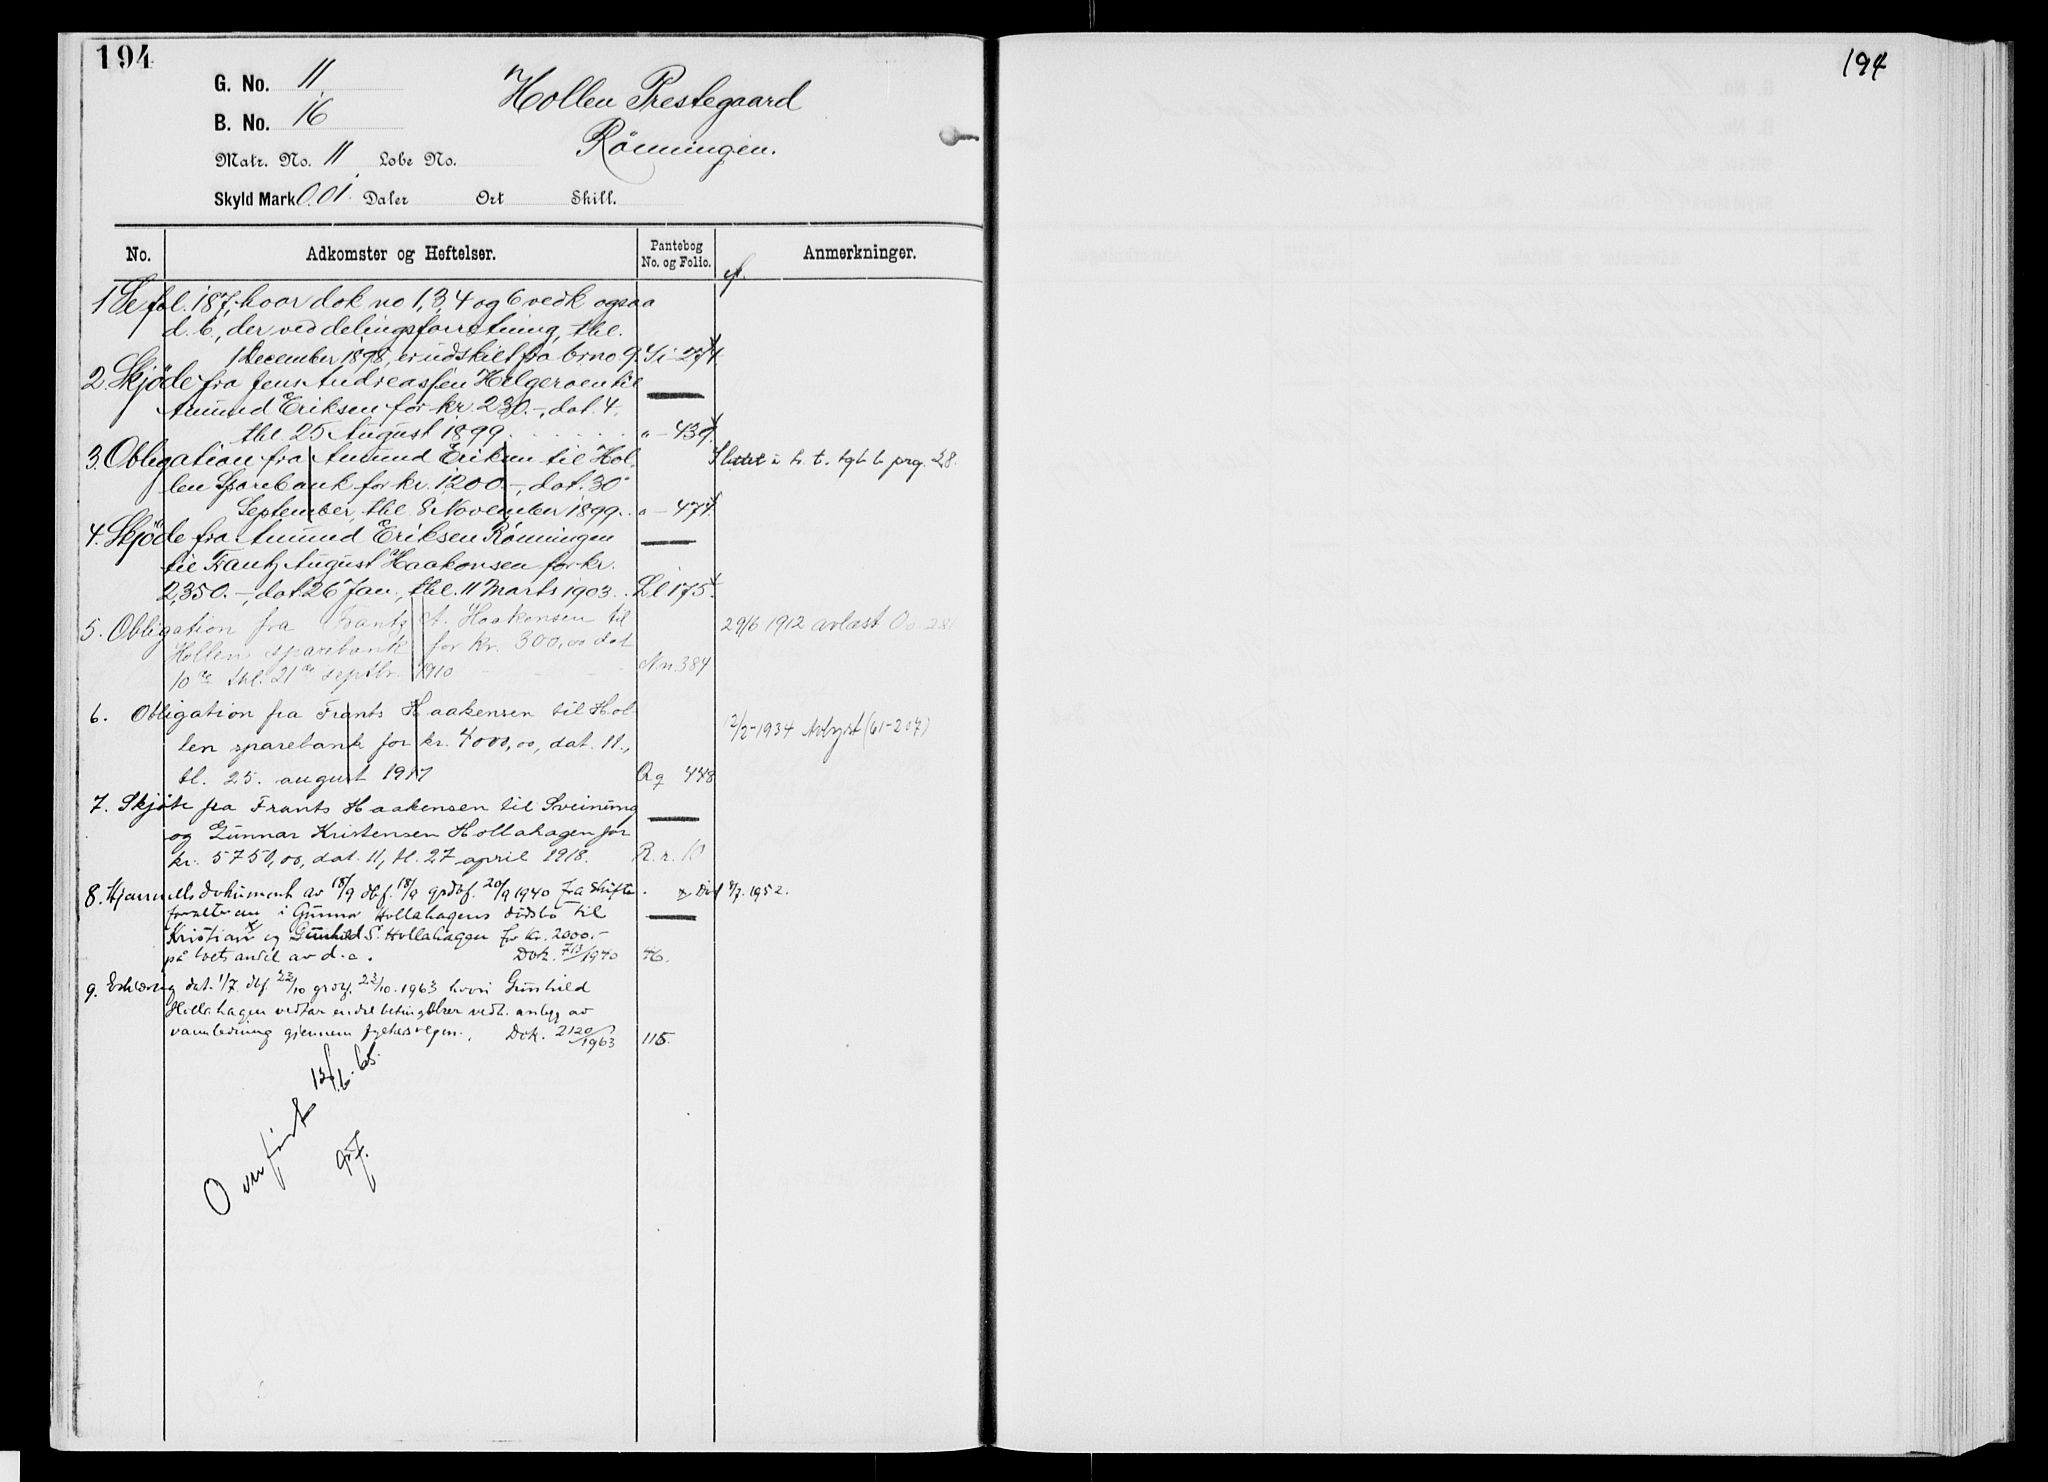 194
194
G. No. 11
Hollen Prestegaard
B. No. 16
Rönningen.
Matr. No. 11 Løbe No.
Skyld Mark 0.01. Daler Ort Skill.
No. Adkomster og Heftelser. Pantebog No. og Folio. Anmerkninger.
1 Se fol. 187, hvor dok no 1, 3, 4 og 6 vedk ogsaa
d. b., der ved delingsforretning, thl.
1 December 1898, er udskilt fra brno 9. Ii 274.
2. Skjöde fra Jens Andreassen Helgeroen til
Amund Eriksen for kr. 230.-, dat. 4.
thl. 25 August 1899 " - 439.
3. Obligation fra Amund Eriksen til Hol-
len Sparebank for kr. 1200.-, dat. 30
September, thl. 8 November 1899. " - 474.
Slettet i h. t. tgl. l. prg. 28.
4. Skjöde fra Amund Eriksen Rönningen
til Frantz August Haakonsen for kr.
2,350.-, dat 26 Jan., thl. 11 Marts 1903. Ll 175.
5. Obligation fra Frantz A. Haakensen til
Hollen sparebank for kr. 300,00 dat
10de thl. 21de septbr. 1910 Nn. 384
29/6 1912 avlæst Oo. 281
6. Obligation fra Frants Haakensen til Hol-
len sparebank for kr. 4000,00, dat. 11.,
tl. 25. august 1917 Qq 448
12/2-1934 Avlyst (61-207)
7. Skjöte fra Frants Haakensen til Sveinung
og Gunnar Kristensen Hollahagen for
kr. 5750,00, dat. 11, tl. 27 april 1918. R.r. 10
8. Hjemmelsdokument av 18/9 dbf. 18/9 grdbf. 20/9 1940 fra skifte-
forvalteren i Gunnar Hollahagens dødsbo til
Kristian x og Gunhild S. Hollahagen for kr. 2000.-
på tvets andel av d.e. Dok. 713/1940 46.
x Död 8/7. 1952.
9. Erklæring dat. 1/7 dbf. 22/10 grdbf. 23/10. 1963 hvori Gunhild
Hollahagen vedtar endel betingelser vedk. anlegg av
vannledning gjennem fylkesvegen. Dok. 2120/1963 115.
Overført 12/6. 65.